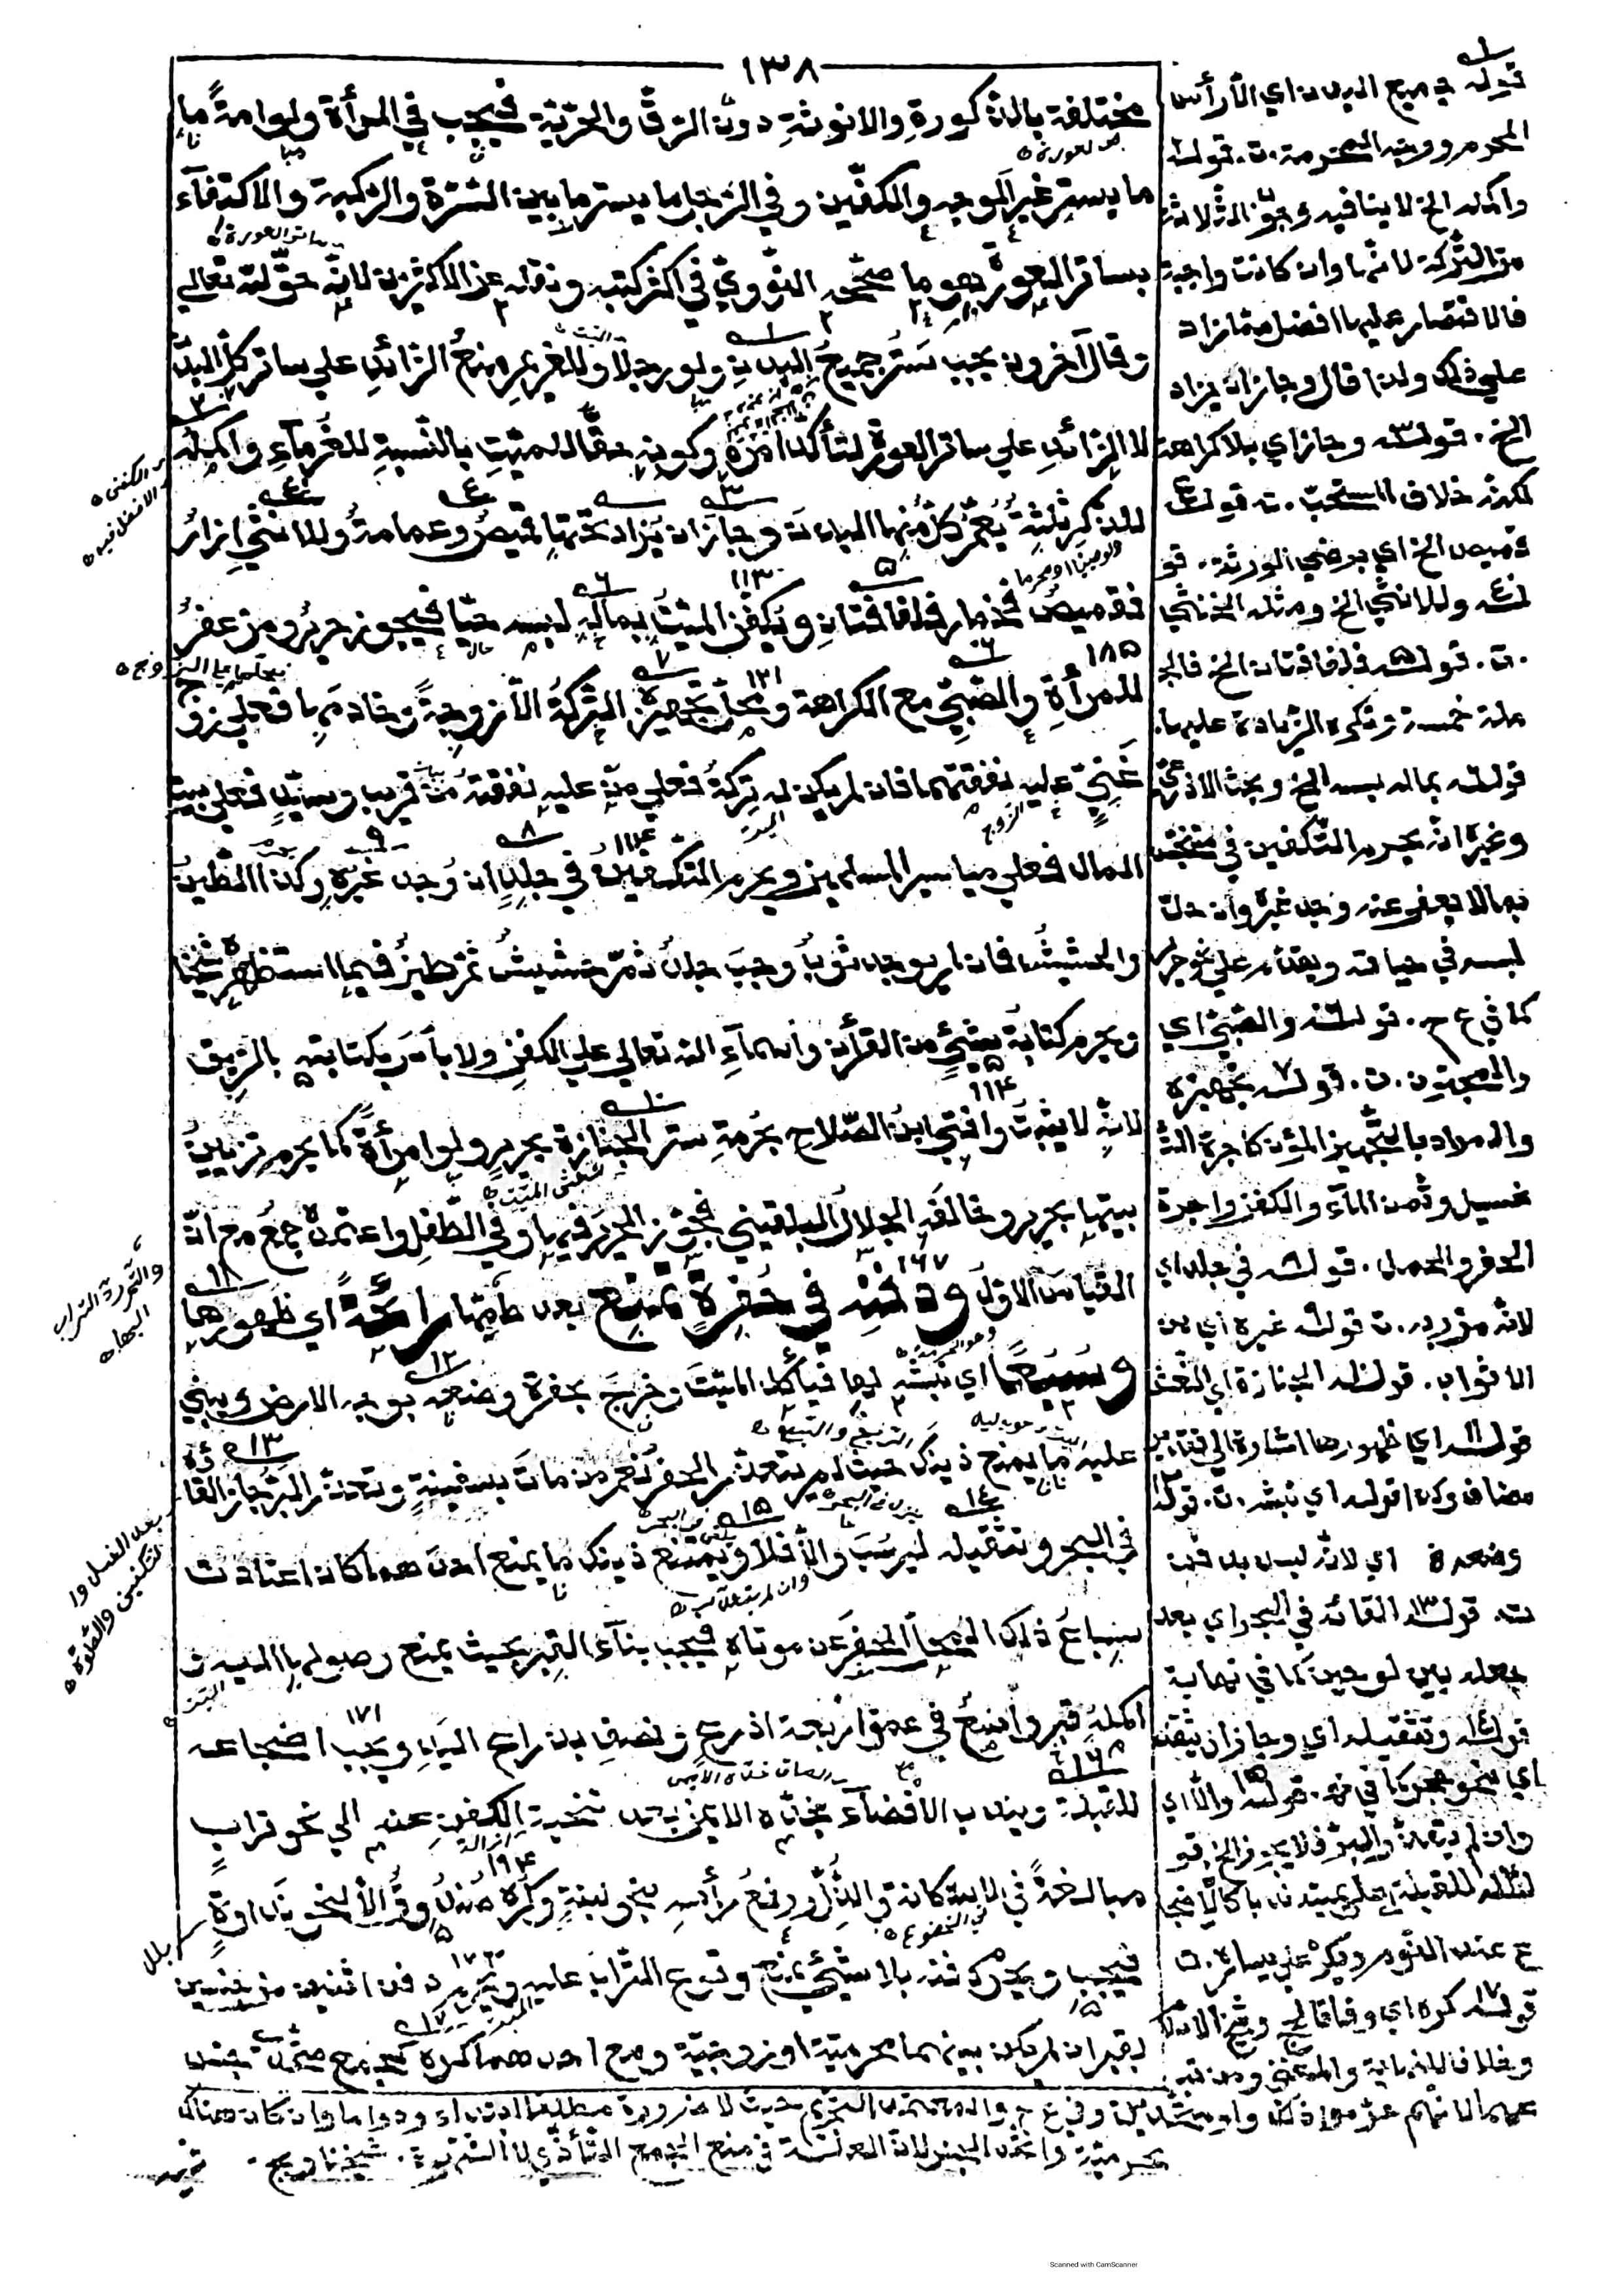 ١٣٨
مختلفة بالذكورة والانوثة دون الرق والحرية فيجب في المرأة ولو امة ما
ما يستر غير الوجه والكفين وفي الرجل ما يستر ما بين السرة والركبة والاكتفآء
بساتر العورة هو ما صححه النووي في اكثر كتبه ونقله عن الاكثرين لانه حق لله تعالي
وقال آخرون يجب ستر جميع البدن ولو رجلا وللغريم منع الزائد علي ساتر كل البدن
لا الزائد علي ساتر العورة لتأكد امره وكونه حقا للميت بالنسبة للغرمآء واكمله
للذكر ثلثة يعم كل منها البدن وجاز ان يزاد تحتها قميص وعمامة وللانثي ازار
فقميص فخمار فلفافتان ويكفن الميت بماله لبسه حيا فيجوز حرير ومزعفر
للمرأة والصبي مع الكراهة ومحل تجهيزه التركة الا زوجة وخادمها فعلي زوج
غني عليه نفقتهما فان لم يكن له تركة فعلي من عليه نفقته من قريب وسيد فعلي بيت
المال فعلي مياسير المسلمين ويحرم التكفين في جلد ان وجد غيره وكذا الطين
والحشيش فان لم يوجد ثوب وجب جلد ثم حشيش ثم طين فيما استظهره شيخنا
ويحرم كتابة شيئ من القرأن واسمآء الله تعالي علي الكفن ولا بأس بكتابته بالريق
لانه لا يثبت وافتي ابن الصلاح بحرمة ستر الجنازة بحرير ولو امرأة كما يحرم تزيين
بيتها بحرير وخالفه الجلال البلقيني فجوز الحرير فيها وفي الطفل واعتمده جمع مع انه
القياس الاول ودفنه في حفرة تمنع بعد طمها رائحة اي ظهورها
وسبعا اي نبشه لها فيأكل الميت وخرج بحفرة وضعه بوجه الارض ويبني
عليه ما يمنع ذينك حيث لم يتعذر الحفر نعم من مات بسفينة وتعذر البر جاز القاؤه
في البحر وتثقيله ليرسب والا فلا وبتمنع ذينك ما يمنع احدهما كان اعتادت
سباع ذلك المحل الحفر عن موتاه فيجب بنآء القبر بحيث يمنع وصولها اليه
اكمله قبر واسع في عمق اربعة اذرع ونصف بذراع اليد ويجب اضجاعه
للقبلة ويندب الافضآء بخده الايمن بعد تنحية الكفن عنه الي نحو تراب
مبالغة في الاستكانة والذل ورفع رأسه بنحو لبنة وكره صندوق الا لنحو نداوة
فيجب ويحرم دفنه بلا شيئ يمنع وقوع التراب عليه ويحرم دفن اثنين من جنسين
بقبر ان لم يكن بينهما محرمية او زوجية ومع احدهما كره كجمع متحدي جنس
قوله جميع البدن اي الا رأس
المحرم ووجه المحرمة.ت. قوله
واكمله الخ لا ينافيه وجوب الثلاثة
من التركة لانها وان كانت واجبة
فالاقتصار عليها افضل مما زاد
علي ذلك ولذا قال وجاز ان يزاد
الخ. قوله وجاز اي بلا كراهة
لكنه خلاف المستحب.ت قوله
قميص الخ اي برضي الورثة. قو
له وللانثي الخ ومثله الخنثي
.ت. قوله فلفافتان الخ فالجـ
ملة خمسة وتكره الزيادة عليها.
قوله بماله لبسه الخ وبحث الاذرعي
وغيره انه يحرم التكفين في متنجس
بما لا يعفي عنه وجد غيره وان حل
لبسه في حياته ويقدم علي نحو حرير
كما في ع ح. قوله والصبي اي
والمجنون.ت. قوله تجهيزه
والمراد بالتجهيز المؤن كاجرة التـ
غسيل وثمن المآء والكفن واجرة
الحفر والحمل. قوله في جلد اي
لانه مزر به.ت قوله غيره اي من
الاثواب. قوله الجنازة اي النعش
قوله اي ظهورها اشارة الي تقدير
مضاف وكذا قوله اي نبشه.ت. قوله
وضعه اي لانه ليس بدفن
ت. قوله القائه في البحر اي بعد
جعله بين لوحين كما في نهاية
قوله وتثقيله اي وجاز ان يثقل
اي بنحو حجر كما في قوله والا اي
وان لم يتعذر البر فلا يجوز الخ قو
له للقبلة
ع عند النوم ويكره علي يساره.ت
قوله كره اي وفاقا
وخلافا للنهاية والمغني
الكفن
والافضل فيه
بعد الغسل وا
لتكفين والصلوة
بلل
حرمية واتحد الجنس لان العلة في منع الجمع التأذي لا الشهوة. شيخنا
Scanned with CamScanner